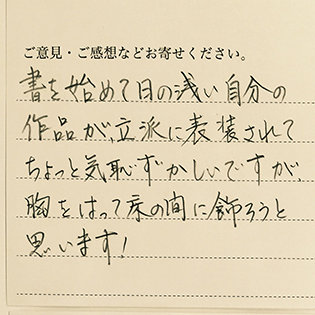 ご意見・ご感想などお寄せください。
書を始めて日の浅い自分の
作品が、立派に表装されて
ちょっと気恥ずかしいですが、
胸をはって床の間に飾ろうと
思います!